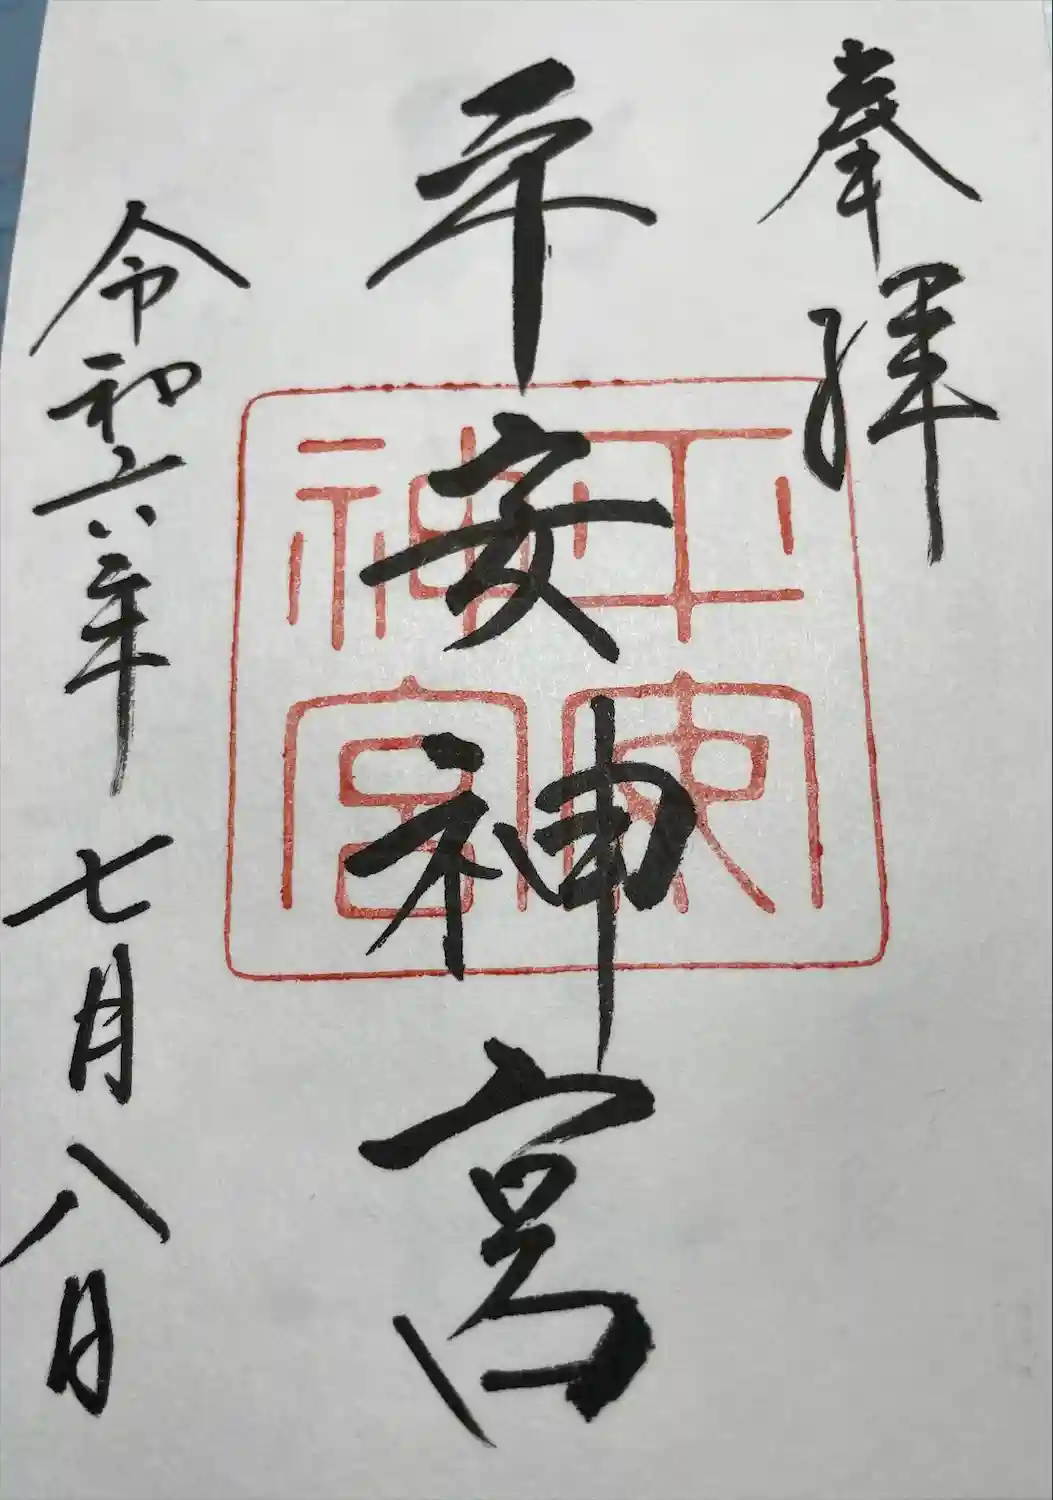 奉拝
平安神宮
令和六年七月八日
平安神宮